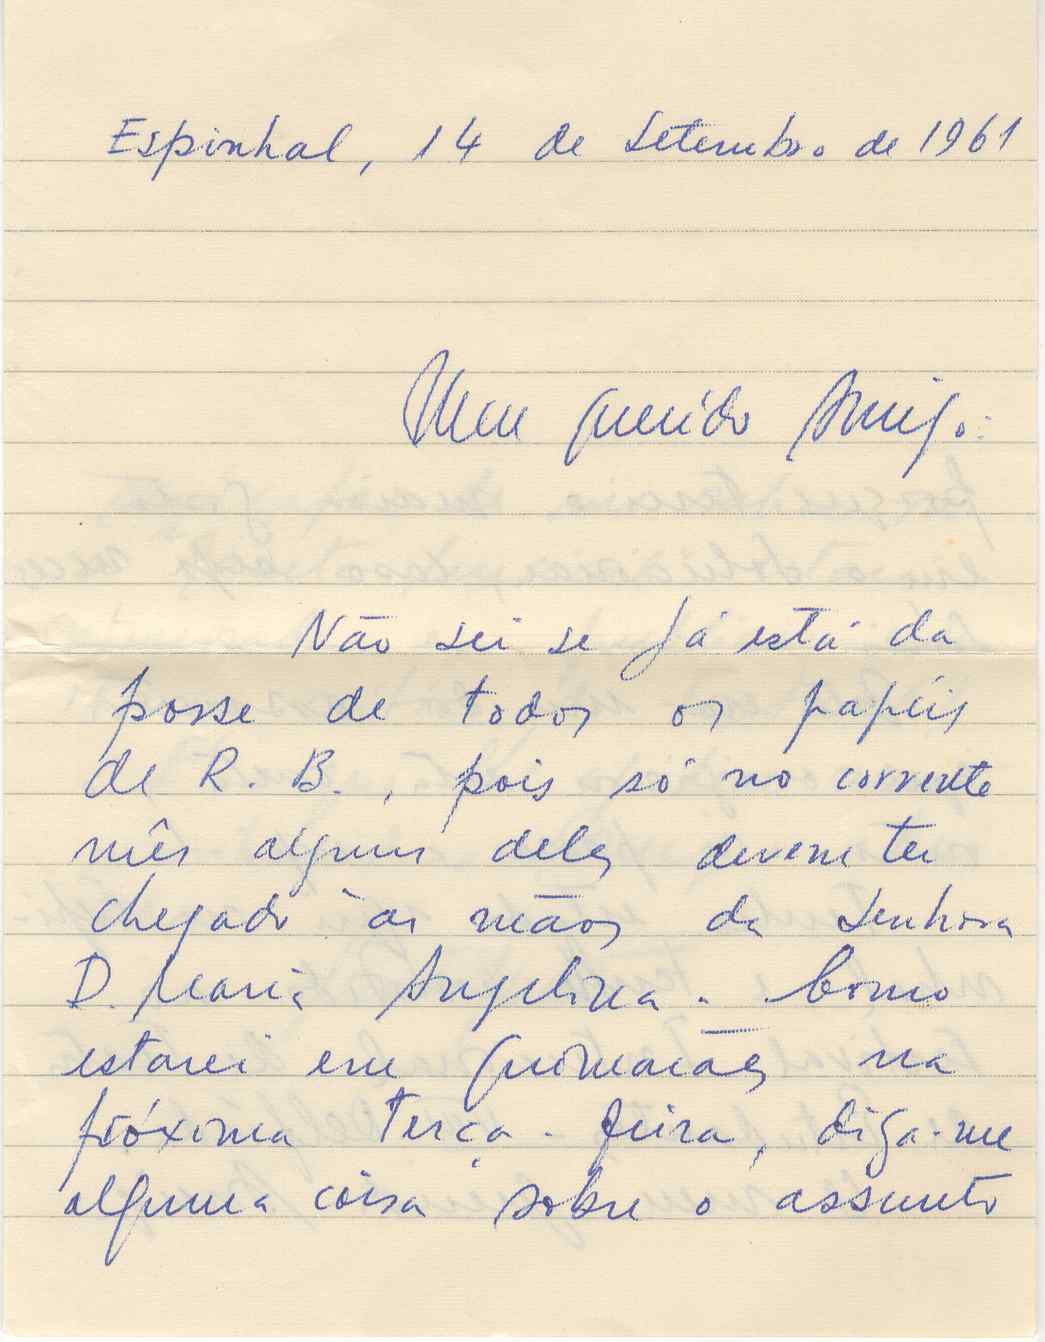 Espinhal, 14 de Setembro de 1961
Meu querido Amigo:
Não sei se já está da
posse de todos os papéis
de R. B., pois só no corrente
mês alguns deles devem ter
chegado às mãos da Senhora
D. Maria Angelina. Como
estarei em Guimarães na
próxima Terça-feira, diga-me
alguma coisa sobre o assunto